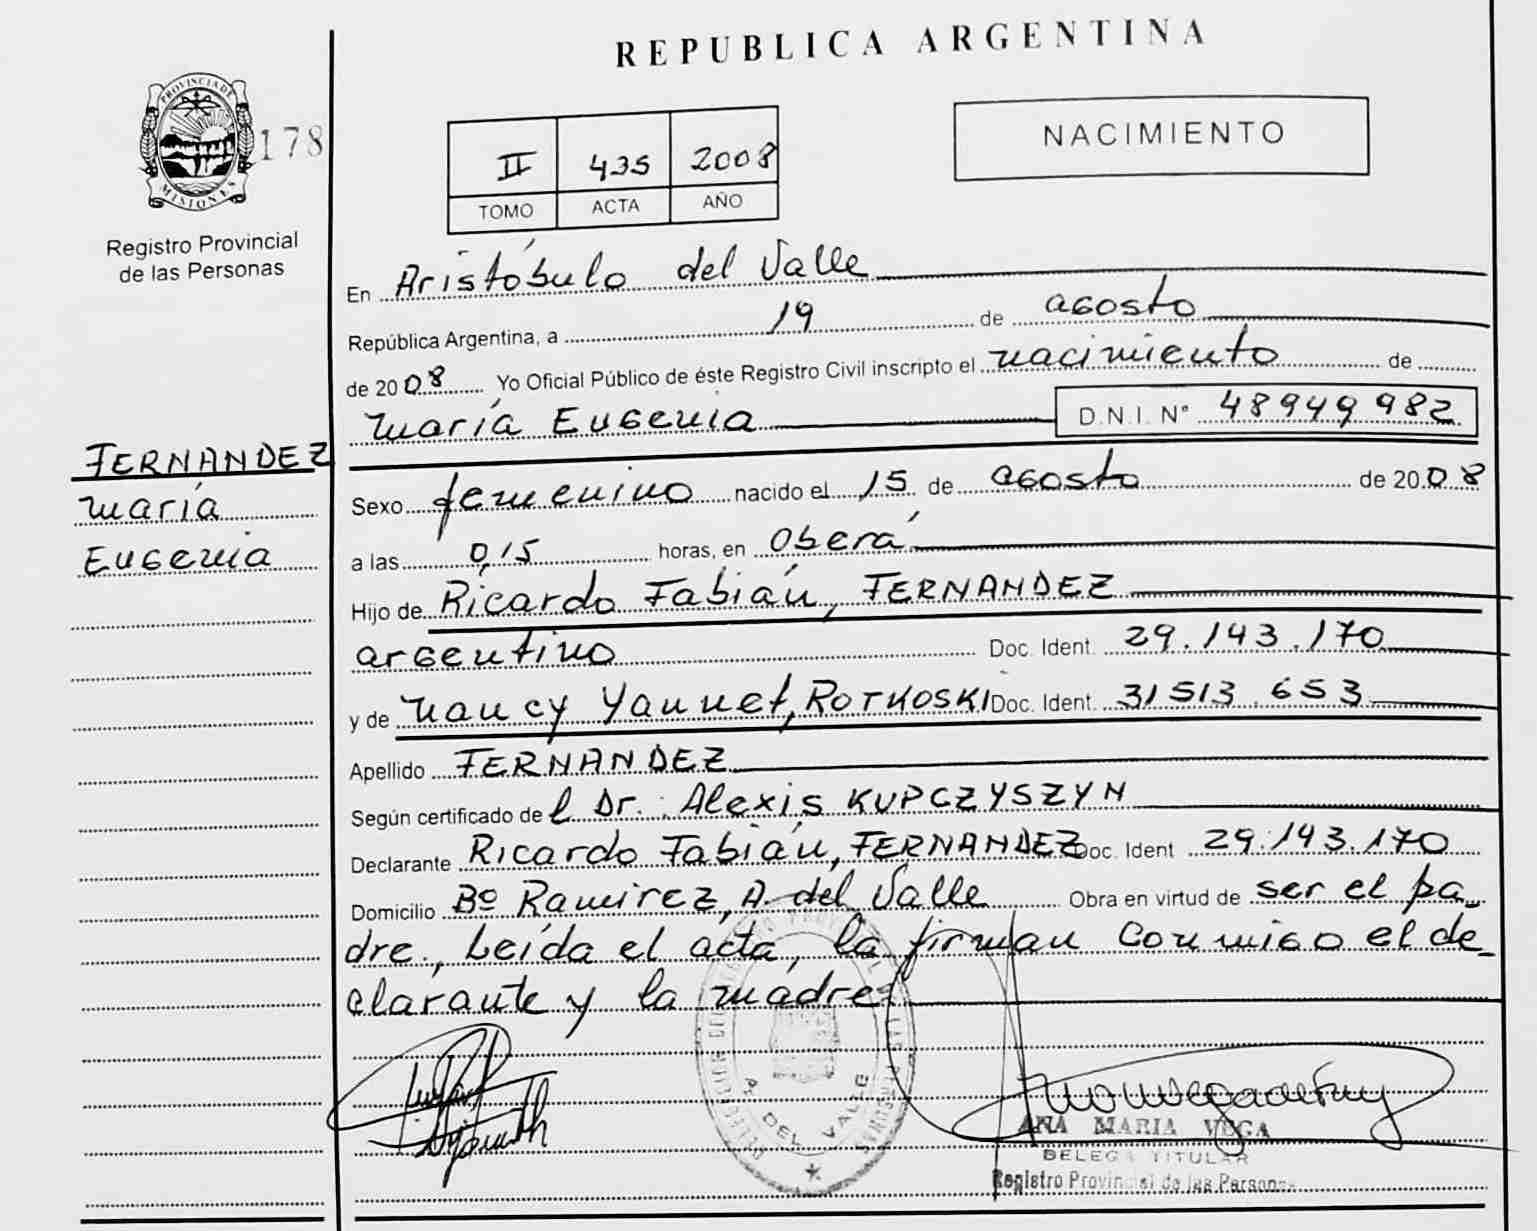 REPUBLICA ARGENTINA
PROVINCIA DE
MISIONES
178
Registro Provincial
de las Personas
II 435 2008
TOMO ACTA AÑO
NACIMIENTO
En Aristóbulo del Valle
República Argentina, a 19 de agosto
de 2008 Yo Oficial Público de éste Registro Civil inscripto el nacimiento de
María Eugenia D.N.I. N° 48949982
FERNANDEZ
María
Eugenia
Sexo femenino nacido el 15 de agosto de 2008
a las 0,15 horas, en Oberá
Hijo de Ricardo Fabián, FERNANDEZ
argentino Doc. Ident. 29.143.170
y de Nancy Yannet, ROTKOSKI Doc. Ident. 31513.653
Apellido FERNANDEZ
Según certificado de l Dr. Alexis KUPCZYSZYN
Declarante Ricardo Fabián, FERNANDEZ Doc. Ident 29.143.170
Domicilio Bº Ramirez, A. del Valle Obra en virtud de ser el pa-
dre., Leída el acta, la firman conmigo el de-
clarante y la madre
A. DEL VALLE
ANA MARIA VEGA
DELEGA TITULAR
Registro Provincial de las Personas